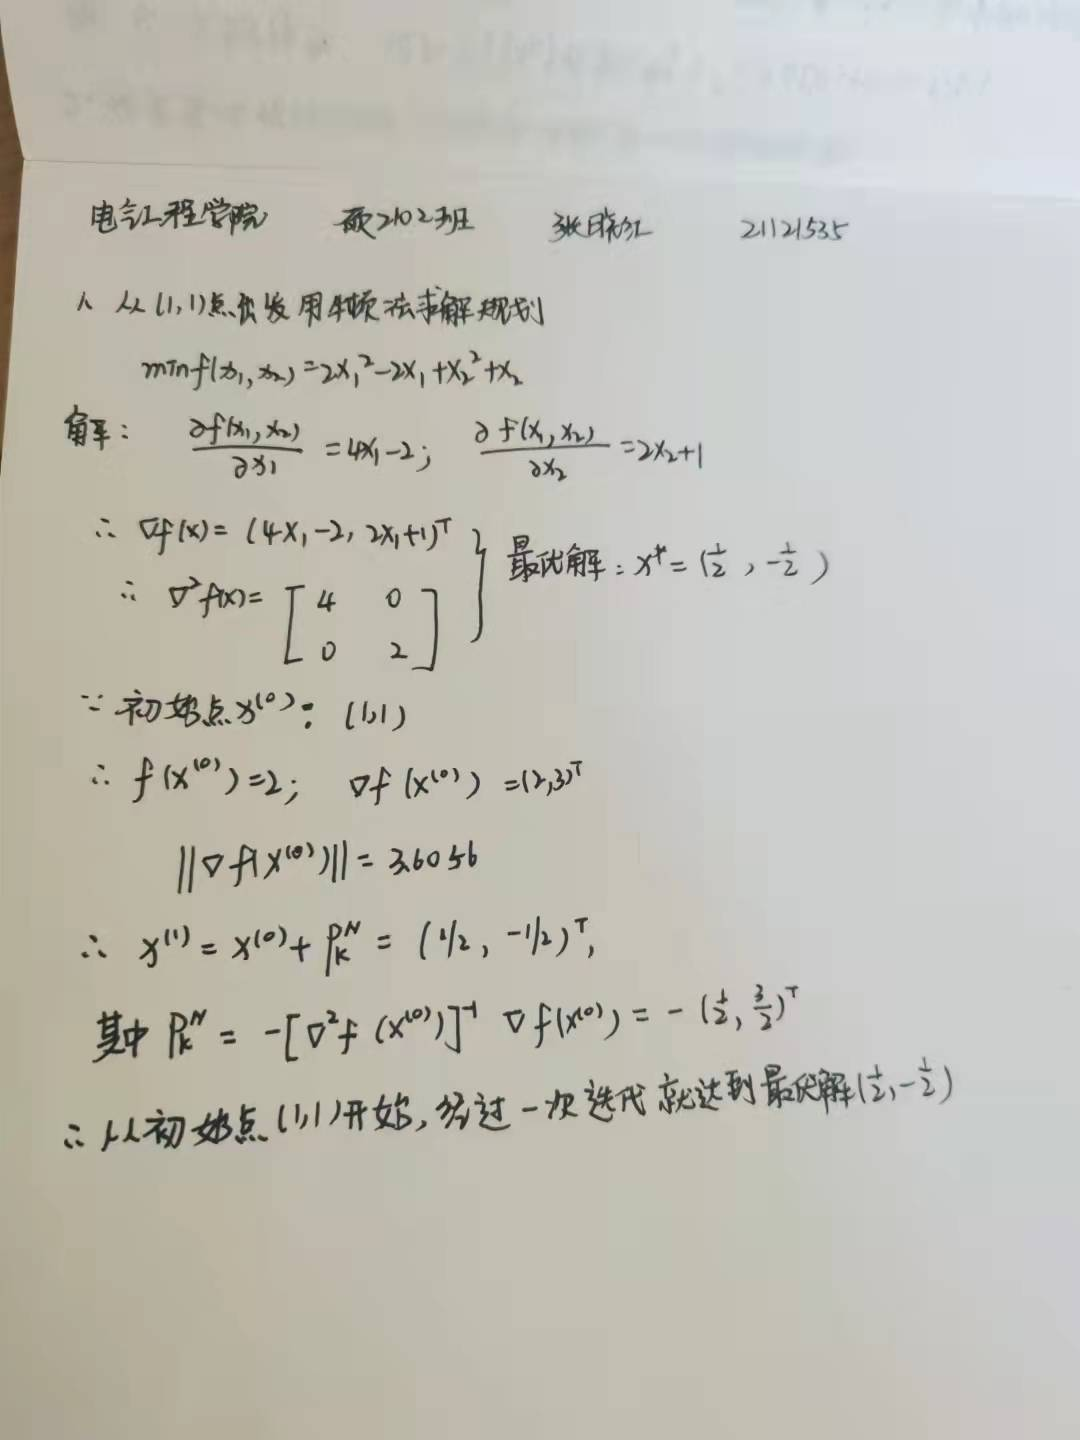 电气工程学院 硕2102班 张晓红 21121535
1. 从(1,1)点出发用牛顿法求解规划
min f(x₁, x₂) = 2x₁² - 2x₁ + x₂² + x₂
解: ∂f(x₁, x₂)/∂x₁ = 4x₁-2; ∂f(x₁, x₂)/∂x₂ = 2x₂+1
∴ ∇f(x) = (4x₁-2, 2x₁+1)ᵀ
∴ ∇²f(x) = [4 0
0 2]
} 最优解: x* = (1/2, -1/2)
∵ 初始点 x⁽⁰⁾: (1,1)
∴ f(x⁽⁰⁾) = 2; ∇f(x⁽⁰⁾) = (2,3)ᵀ
||∇f(x⁽⁰⁾)|| = 3.6056
∴ x⁽¹⁾ = x⁽⁰⁾ + Pₖᴺ = (1/2, -1/2)ᵀ,
其中 Pₖᴺ = -[∇²f(x⁽⁰⁾)]⁻¹ ∇f(x⁽⁰⁾) = -(1/2, 3/2)ᵀ
∴ 从初始点(1,1)开始, 经过一次迭代就达到最优解(1/2, -1/2)